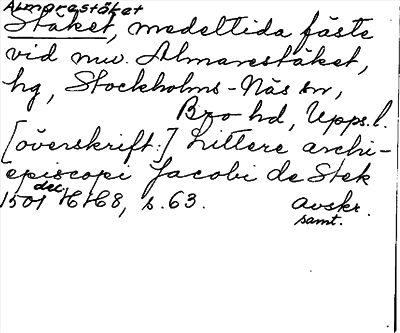 Almarestäket
Stäket, medeltida fäste
vid nuv. Almarestäket,
hg, Stockholms-Näs sn,
Bro hd, Upps.l.
[överskrift:] Littere archi-
episcopi Jacobi de Stek
1501 dec. H 168, s. 63. avskr.
samt.